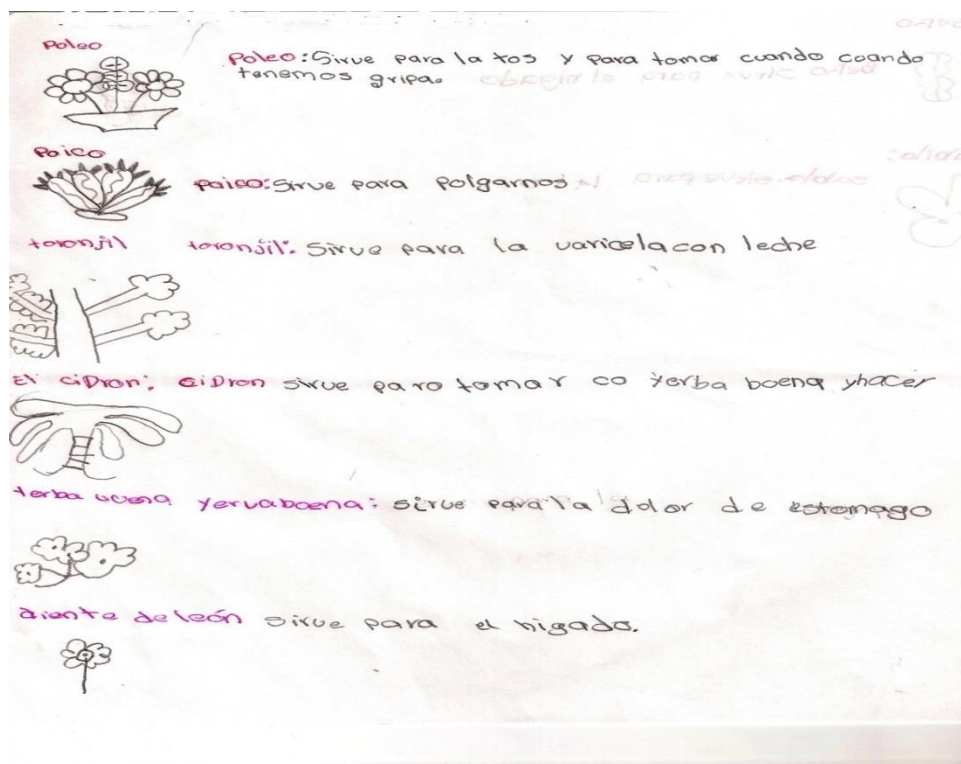 Poleo
Poleo: Sirve para la tos y para tomar cuando cuando
tenemos gripa.
Paico
paico: sirve para polgarnos
toronjil toronjil: Sirve para la varicela con leche
El ciDron: ciDron sirve paro tomar co yerba boena y hacer
yerba buena yervaboena: sirve para la dolor de estomago
diente de león sirve para el higado.